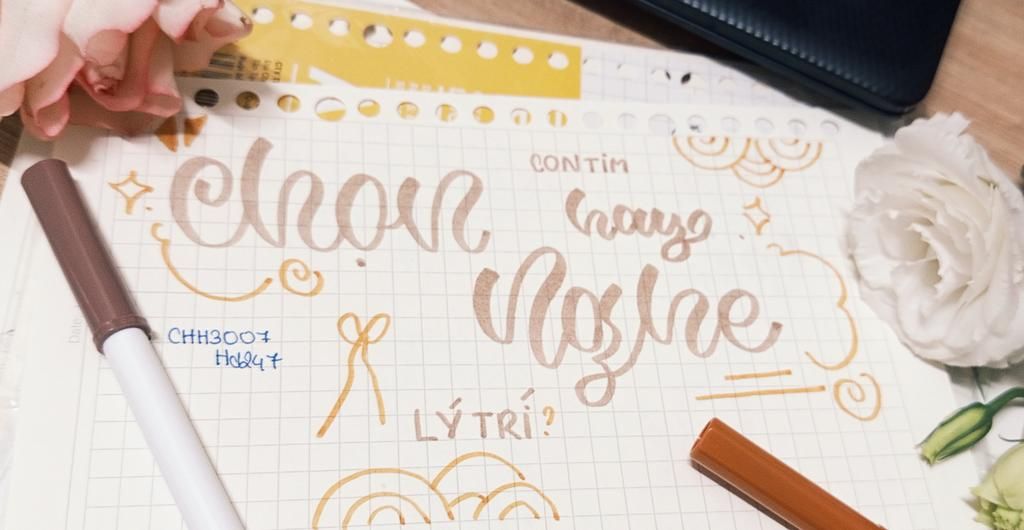 chọn
CON TIM
hay
Nghe
CHH3007
LÝ TRÍ?
Date